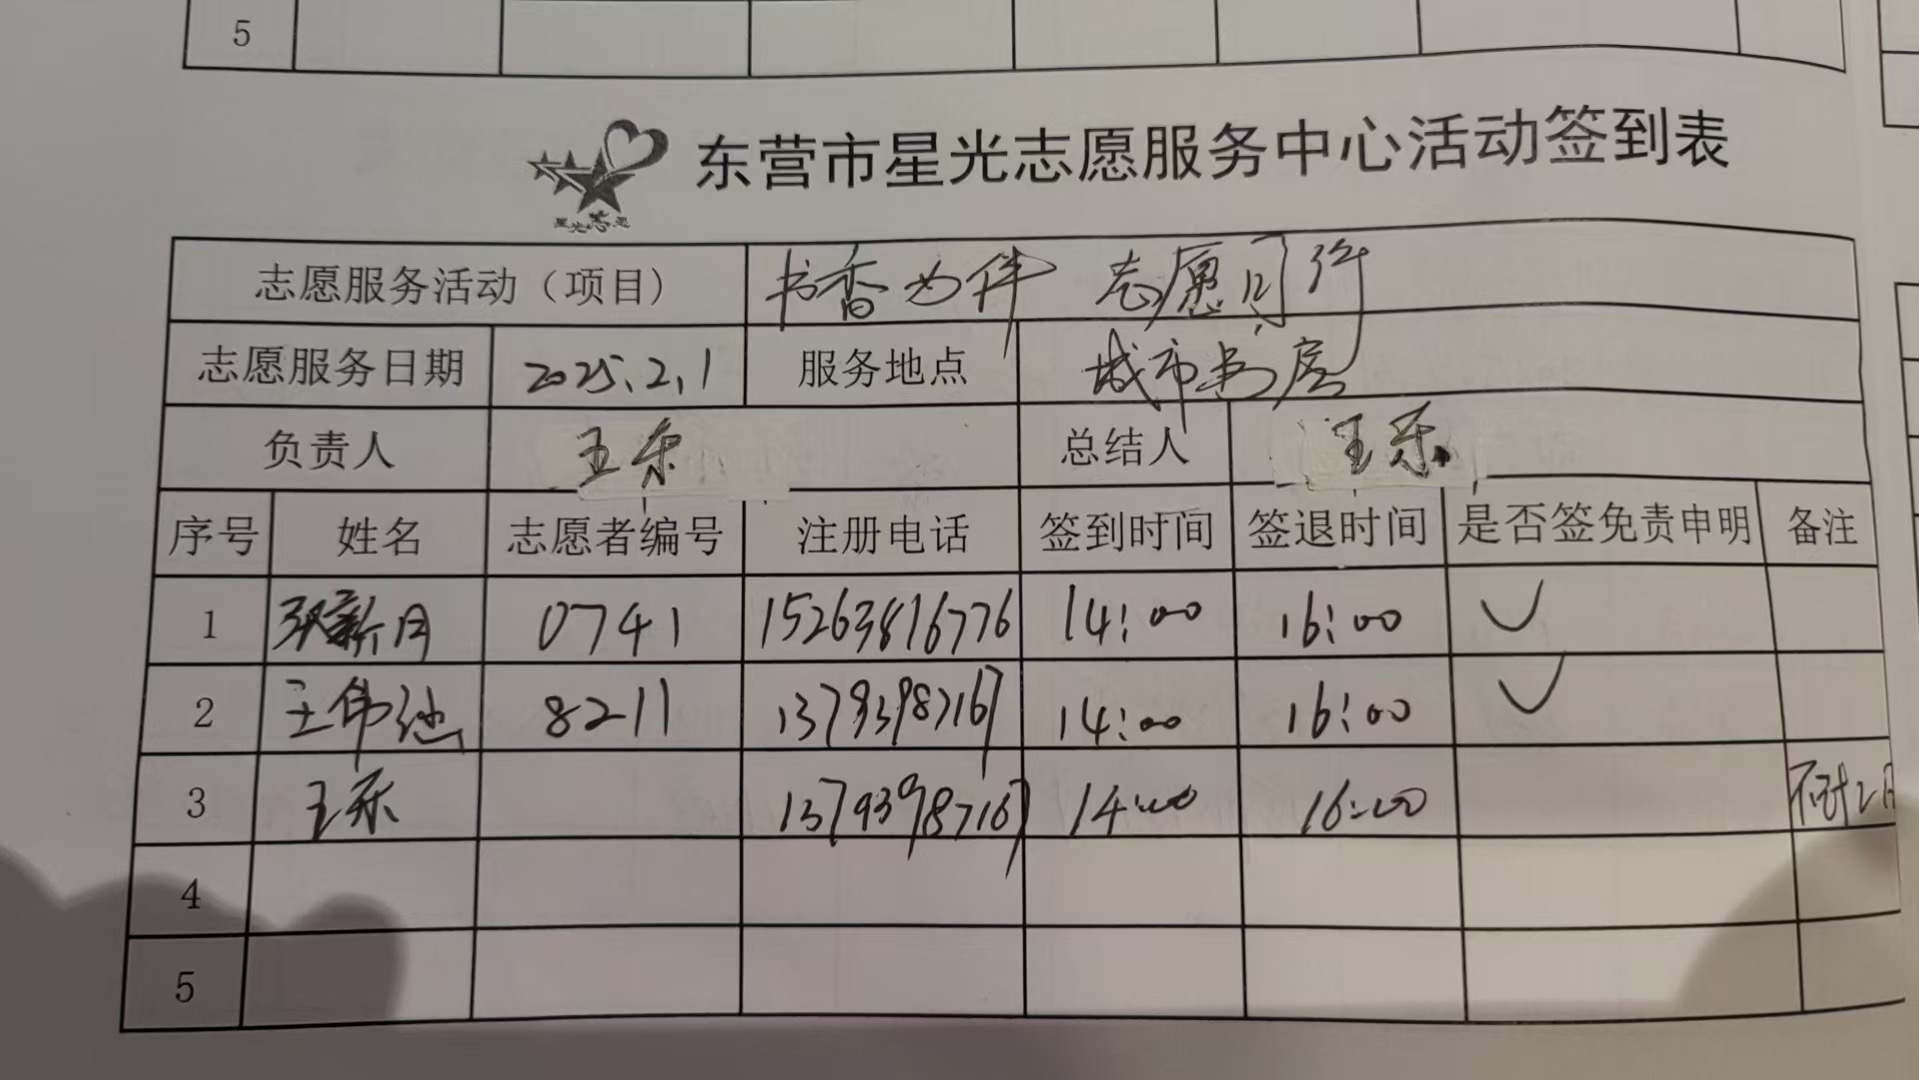 5
东营市星光志愿服务中心活动签到表
星光志愿
志愿服务活动（项目） 书香为伴 志愿同行
志愿服务日期 2025.2.1 服务地点 城市书房
负责人 王乐 总结人 王乐
序号 姓名 志愿者编号 注册电话 签到时间 签退时间 是否签免责申明 备注
1 张新月 0741 15263816776 14:00 16:00 ✓
2 王伟 8211 13793987167 14:00 16:00 ✓
3 王乐 13793987167 14:00 16:00 不计工时
4
5